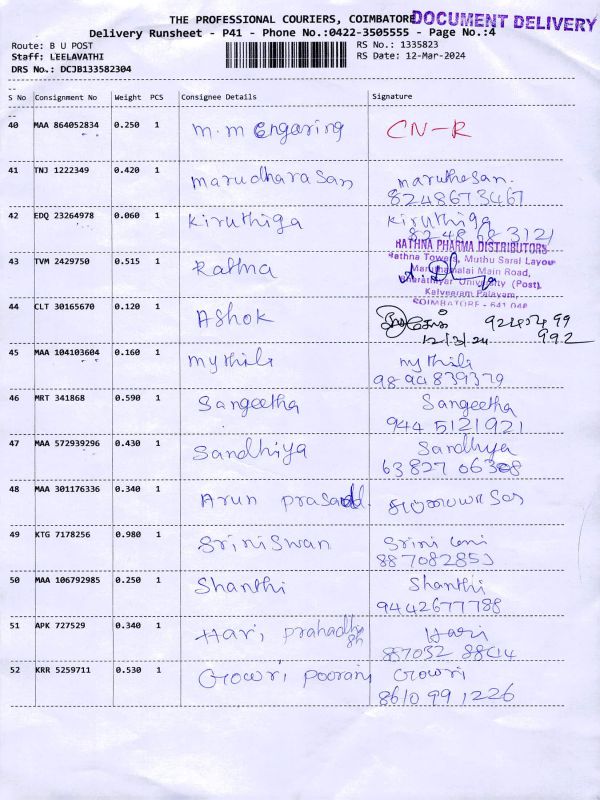 THE PROFESSIONAL COURIERS, COIMBATORE
DOCUMENT DELIVERY
Delivery Runsheet - P41 - Phone No.:0422-3505555 - Page No.:4
Route: B U POST
RS No.: 1335823
Staff: LEELAVATHI
RS Date: 12-Mar-2024
DRS No.: DCJB133582304
S No Consignment No Weight PCS Consignee Details Signature
40 MAA 864052834 0.250 1 M.M Engaring CN-R
41 TNJ 1222349 0.420 1 Marudharasan Maruthesan.
8248673467
42 EDQ 23264978 0.060 1 Kiruthiga Kiruthiga
8248683121
RATHNA PHARMA DISTRIBUTORS
Rathna Towers, Muthu Sarai Layout
43 TVM 2429750 0.515 1 Rathna
Maruthamalai Main Road,
Bharathiyar University (Post),
Kalveeram Palayam,
COIMBATORE - 641 046
44 CLT 30165670 0.120 1 Ashok
12/3/24 992
45 MAA 104103604 0.160 1 mythili mythili
9894839379
46 MRT 341868 0.590 1 Sangeetha Sangeetha
944 5121921
47 MAA 572939296 0.430 1 Sandhiya Sandhya
63827 06308
48 MAA 301176336 0.340 1 Arun prasad
49 KTG 7178256 0.980 1 Sriniswan Srini
50 MAA 106792985 0.250 1 Shanthi Shanthi
9442677788
51 APK 727529 0.340 1 Hari Hari
87032 88414
52 KRR 5259711 0.530 1 Gowri poorani Gowri
8610 99 1226